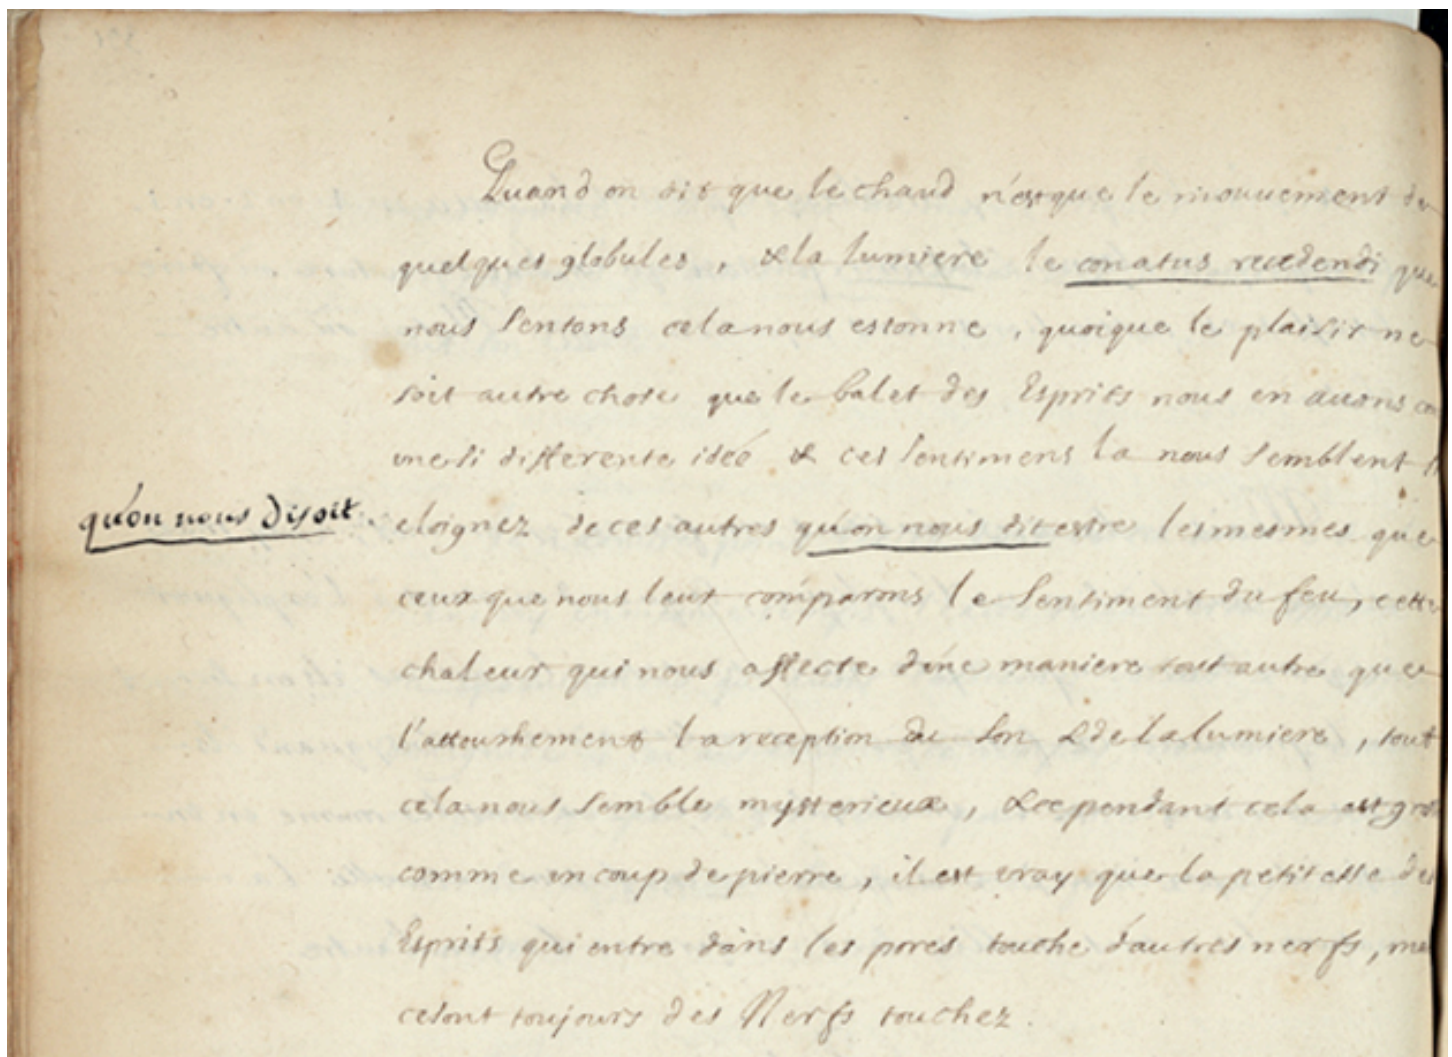 Quand on dit que le chaud n'est que le mouuement de
quelques globules, & la lumiere le conatus recedendi que
nous sentons cela nous estonne, quoique le plaisir ne
soit autre chose que le balet des Esprits nous en auons
une si differente idée & ces sentimens la nous semblent
qu'on nous disoit.
eloignez de ces autres qu'on nous dit estre les mesmes que
ceux que nous leur comparons le sentiment du feu, cette
chaleur qui nous affecte d'une maniere tout autre que
l'attouchement la reception du son & de la lumiere, tout
cela nous semble mysterieux, & cependant cela est
comme un coup de pierre, il est vray que la petitesse des
Esprits qui entre dans les pores touche d'autres nerfs,
ce sont toujours des Nerfs touchez.